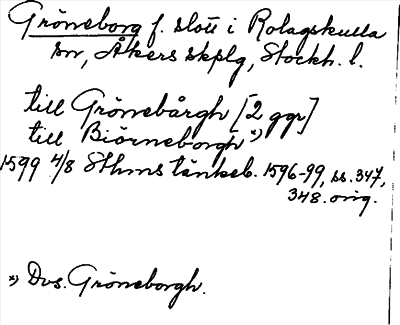 Gröneborg f. slott i Rolagskulla
sn, Åkers skplg, Stockh. l.
till Grönebårgh [2 ggr]
till Biörneborgh *)
1599 4/8 Sthms tänkeb. 1596-99, ss. 347,
348. orig.
*) Dvs. Gröneborgh.